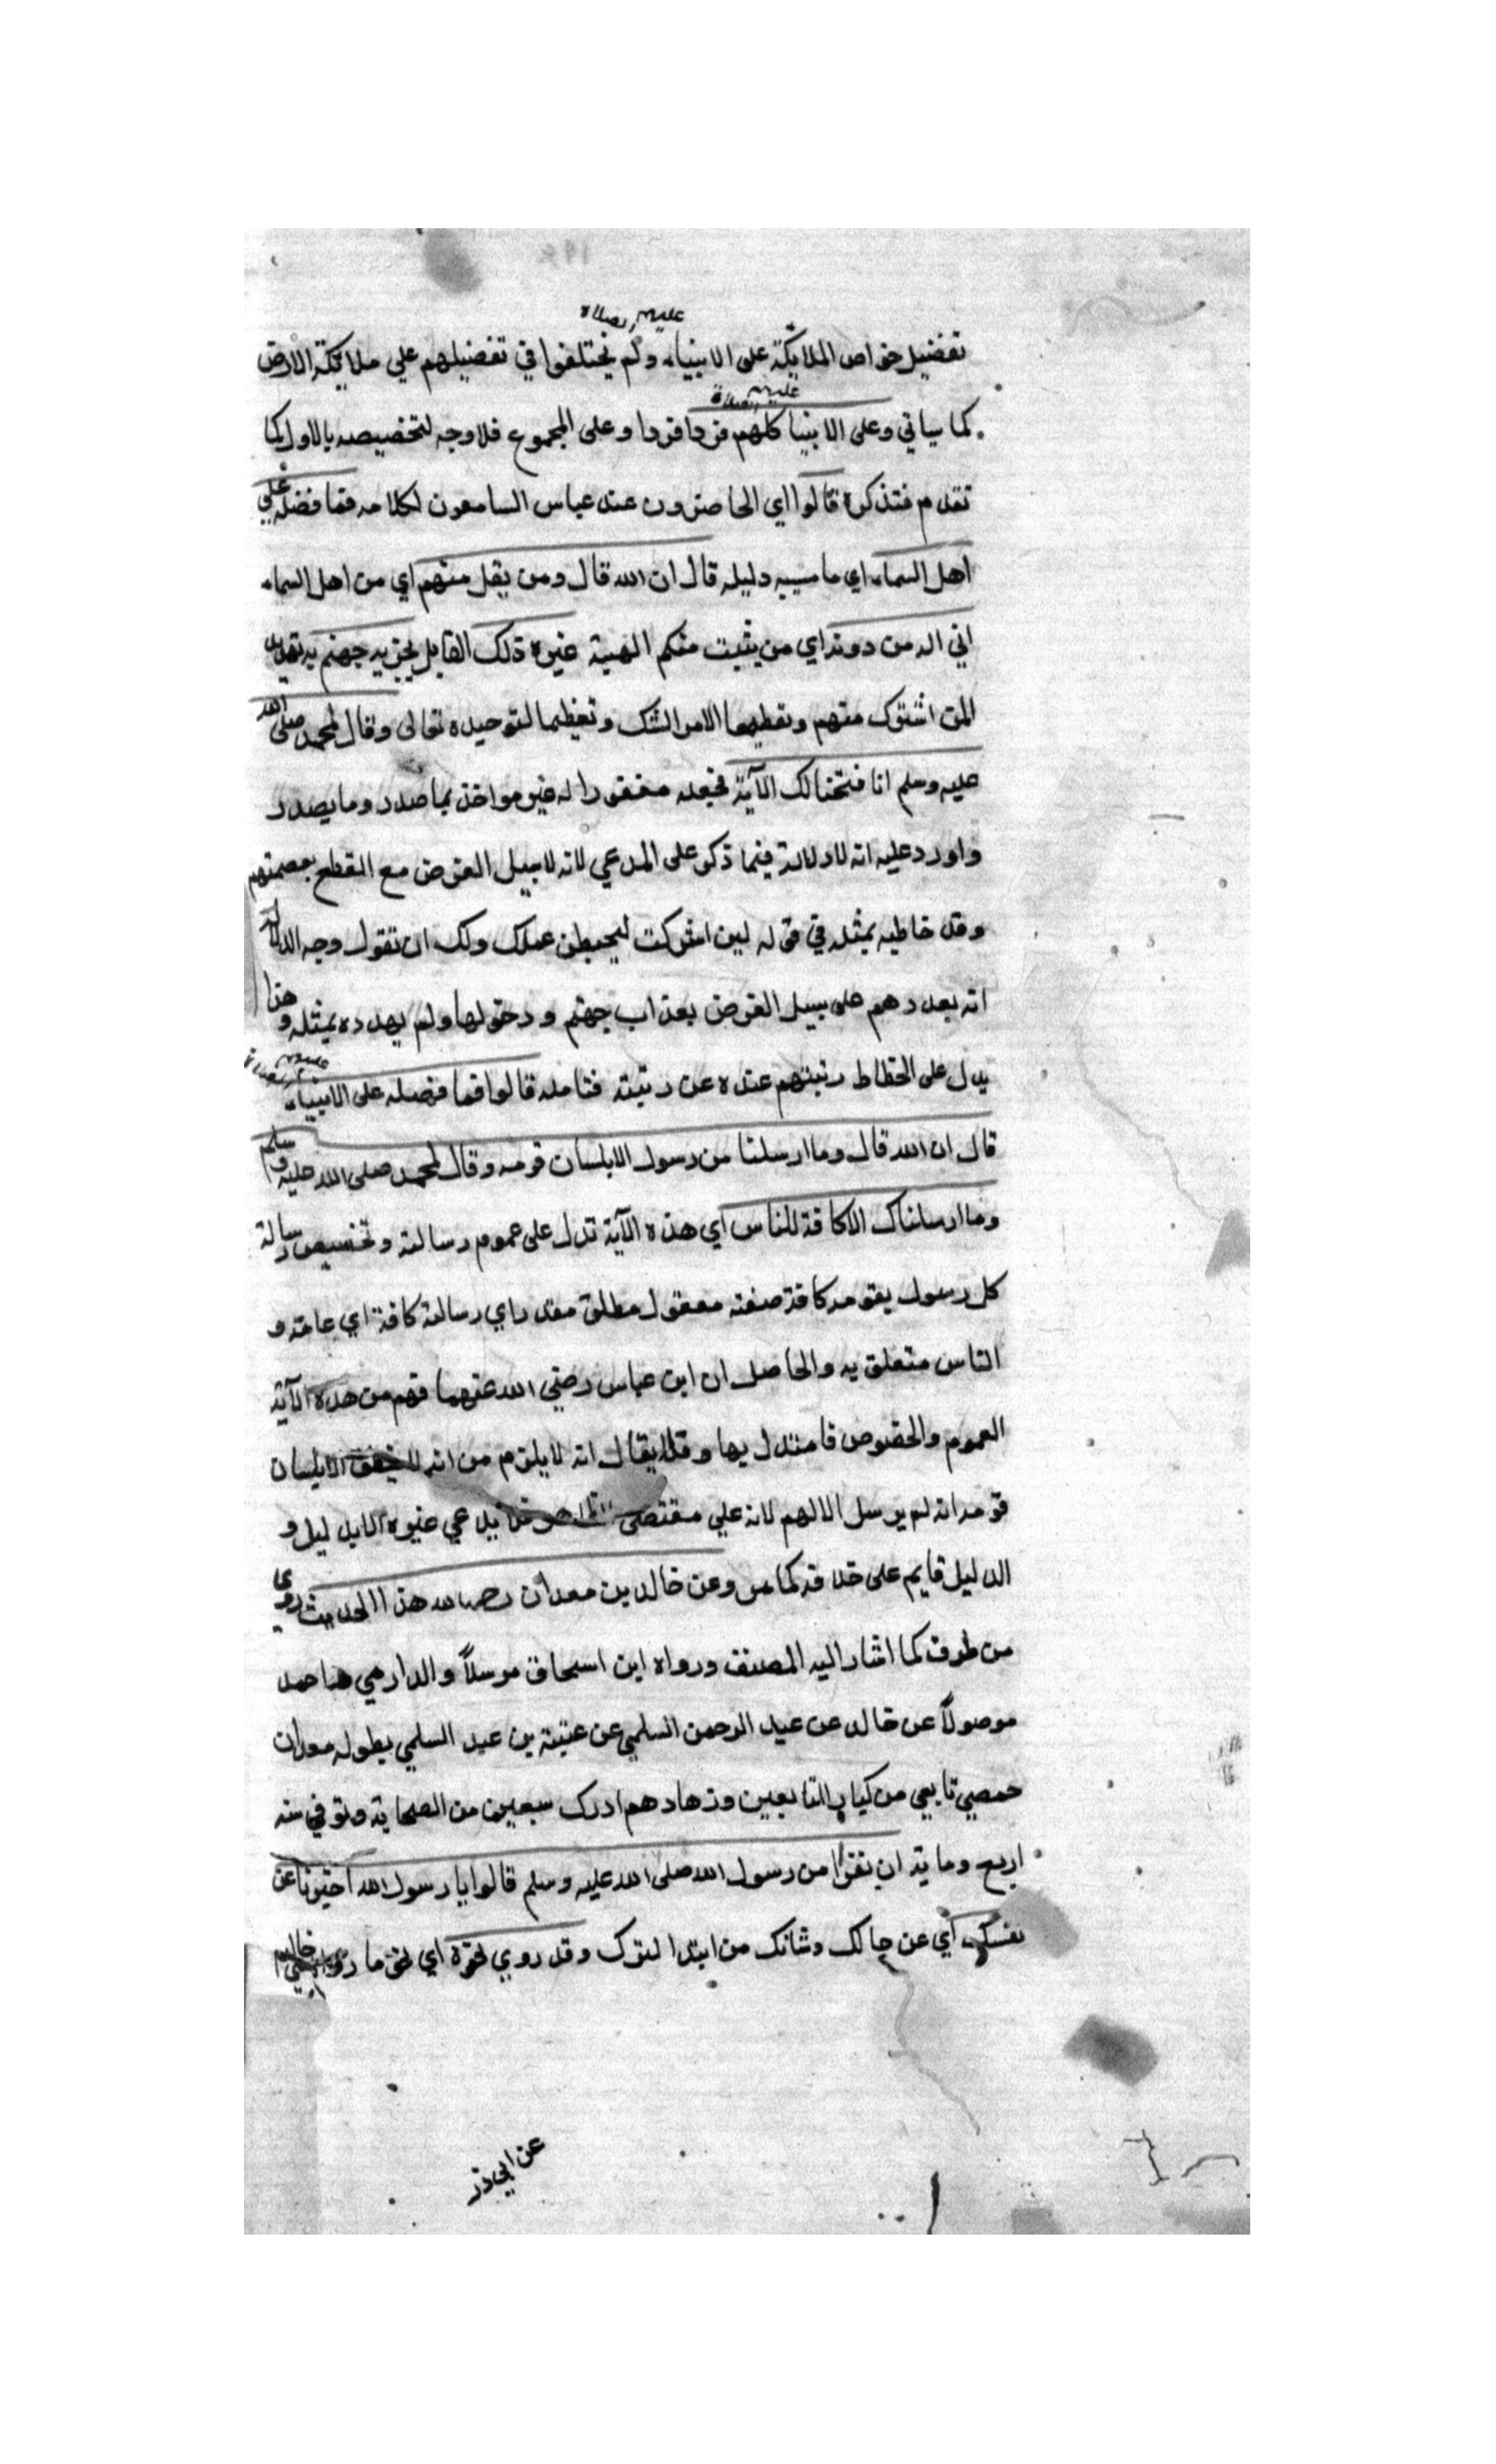 عليهم الصلاة
تفضيل خواص الملائكة على الانبياء ولم يختلفوا في تفضيلهم علي ملائكة الارض
عليهم الصلاة
كما سياتي وعلى الانبيا كلهم فردا فردا وعلى المجموع فلا وجه لتخصيصه بالاول كما
تقدم فتذكره قالوا اي الحاضرون عند عباس السامعون لكلامه فما فضله علي
اهل السماء اي ما سببه دليله قال ان الله قال ومن يقل منهم اي من اهل السماء
اني اله من دونه اي من يثبت منكم الهية غيره ذلك القايل نجزيه جهنم به تهديد
لمن اشترك منهم وتعظيما لامر الشك وتعظيما لتوحيده تعالى وقال لمحمد صلى الله
عليه وسلم انا فتحنا لك الآية فجعله مغفورا له غير مواخذ بما صدر وما يصدر
واورد عليه انه لا دلالة فيما ذكر على المدعي لانه لاسبيل الفرض مع القطع بعصمتهم
وقد خاطبه بمثله في قوله لين اشركت ليحبطن عملك ولك ان تقول وجه الدلالة
انه بعددهم على سبيل الفرض بعذاب جهنم ودخولها ولم يهدده بمثله وهذا
عليهم الصلاة
يدل على انحطاط رتبتهم عنده عن رتبته فتامله قالوا فما فضله على الانبياء
قال ان الله قال وما ارسلنا من رسول الا بلسان قومه وقال لمحمد صلى الله عليه وسلم
وما ارسلناك الا كافة للناس اي هذه الآية تدل على عموم رسالته وتخصيص رسالة
كل رسول بقومه كافة صفة مفعول مطلق مقدر اي رسالة كافة اي عامة و
الناس متعلق به والحاصل ان ابن عباس رضي الله عنهما فهم من هذه الآية
العموم والخصوص فاستدل بها وقد يقال انه لا يلزم من انه الا بلسان
قومه انه لم يرسل الا لهم لانه علي مقتضى يدعي غيره الا بدليل و
الدليل قايم على خلافه كما مر وعن خالد بن معدان رحمه الله هذا الحديث روي
من طرق كما اشار اليه المصنف ورواه ابن اسحاق مرسلاً والدارمي احمد
موصولاً عن خالد عن عبد الرحمن السلمي عن عتبة بن عبد السلمي بطوله معدان
حمصي تابعي من كبار التابعين وزهادهم ادرك سبعين من الصحابة وتوفي سنه
اربع وماية ان نفرا من رسول الله صلى الله عليه وسلم قالوا يا رسول الله اخبرنا عن
نفسك اي عن حالك وشانك من ابتدا امرك وقد روي نحوه اي نحو ما رواه خالد
عن ابي ذر